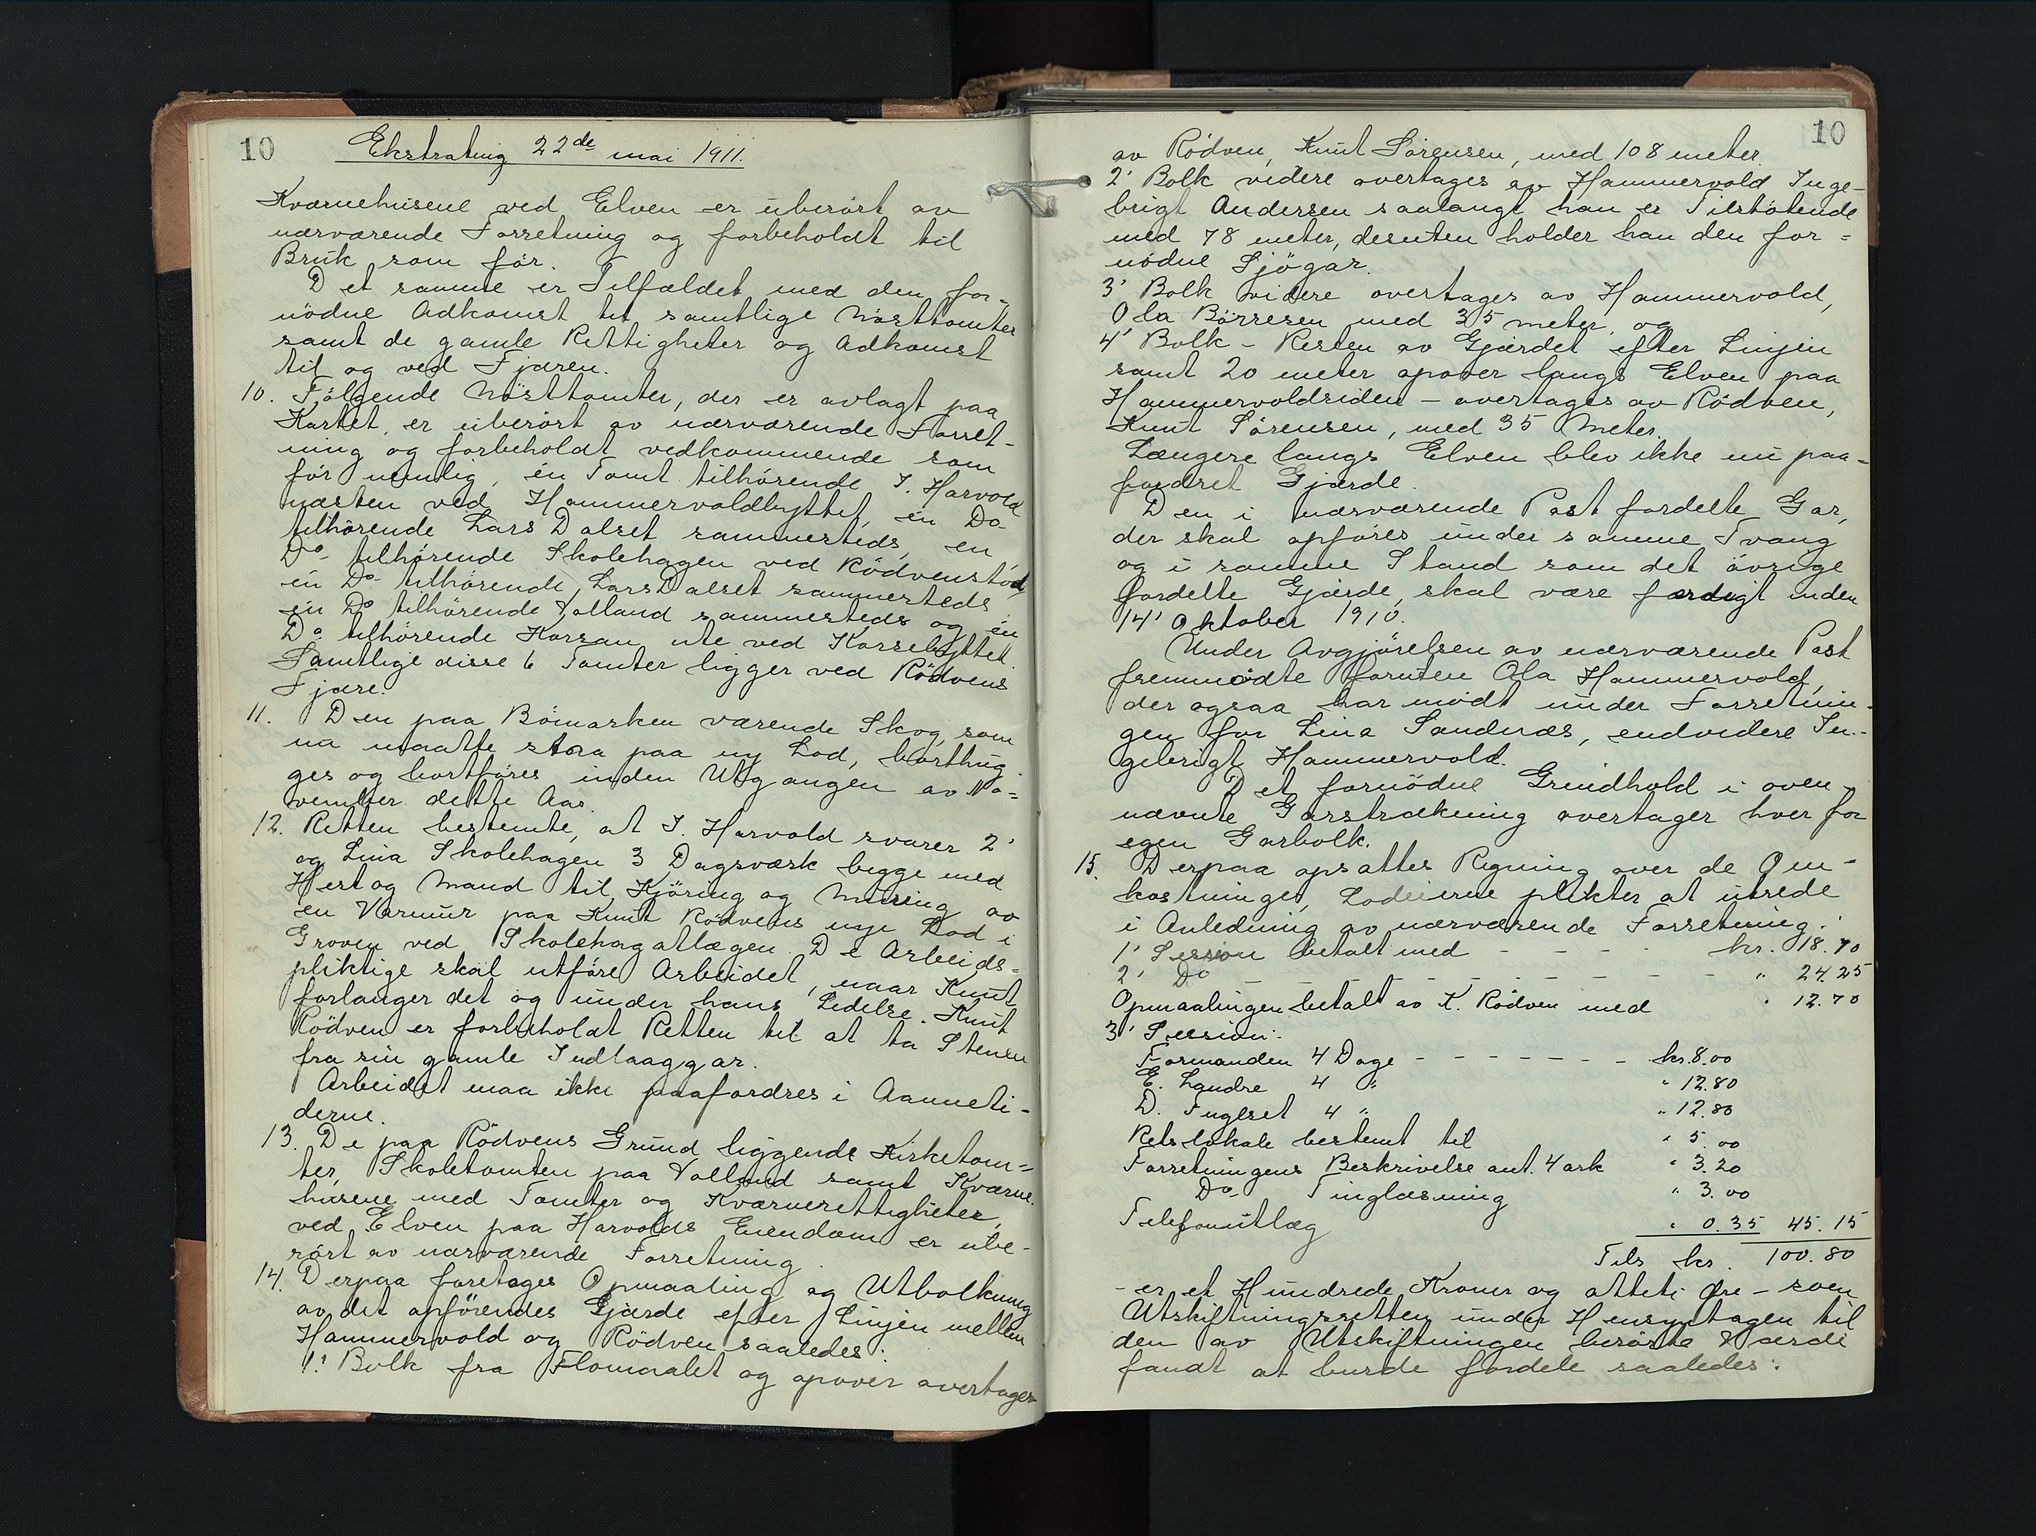 10
Ekstrating 22de mai 1911.
Kværnehusene ved Elven er uberørt av
nærværende Forretning og forbeholdt til
Bruk som før.
Det samme er Tilfældet med den for-
nödne Adkomst til samtlige Nösttomter
samt de gamle Rettigheter og Adkomst
til og ved Fjæren.
10. Fölgende Nösttomter, der er avlagt paa
Kartet, er uberört av nærværende Forret-
ning og forbeholdt vedkommende som
för nemlig, én Tomt tilhörende I. Harvold
næsten ved Hammervoldbyttet, én Do
tilhörende Lars Dalset sammesteds, en
Do tilhörende Skolehagen ved Rödvenstöd
én Do tilhörende Lars Dalset sammesteds
én Do tilhörende Volland sammesteds og én
Do tilhörende Korsan ute ved Korsebyttet.
Samtlige disse 6 Tomter ligger ved Rödvens
Fjære.
11. Den paa Bömarken værende Skog, som
nu maatte staa paa ny Lod, borthug-
ges og bortföres inden Utgangen av No-
vember dette Aar.
12. Retten bestemte, at I. Harvold svarer 2
og Lina Skolehagen 3 Dagsværk begge med
Hest og Mand til Kjöring og Muring av
en Varmur paa Knut Rödvens nye Lod i
Groven ved Skolehagatlægen. De Arbeids-
pliktige skal utföre Arbeidet, naar Knut
forlanger det og under hans Ledelse. Knut
Rödven er forbeholdt Retten til at ta Stenen
fra sin gamle Indlaaggar.
Arbeidet maa ikke paafordres i Aanneti-
derne.
13. De paa Rödvens Grund liggende Kirketom-
ter, Skoletomten paa Volland samt Kværne-
husene med Tomter og Kværnerettigheter
ved Elven paa Harvolds Eiendom er ube-
rört av nærværende Forretning.
14. Derpaa foretages Opmaaling og Utbolkning
av det opförendes Gjærde efter Linjen mellem
Hammervold og Rödven saaledes:
1' Bolk fra Flomaalet og opover overtages
10
av Rödven, Knut Sörensen, med 108 meter.
2' Bolk videre overtages av Hammervold Inge-
brigt Andersen saalangt han er Tilstötende
med 78 meter, desuten holder han den for-
nödne Sjögar.
3' Bolk videre overtages av Hammervold,
Ola Börresen med 35 meter, og
4' Bolk – Resten av Gjærdet efter Linjen
samt 20 meter opover langs Elven paa
Hammervoldsiden – overtages av Rödven,
Knut Sörensen, med 35 Meter.
Længere langs Elven blev ikke nu paa-
fordret Gjærde.
Den i nærværende Post fordelte Gar,
der skal opföres under samme Tvang
og i samme Stand som det övrige
fordelte Gjærde, skal være færdigt inden
14' Oktober 1910.
Under Avgjörelsen av nærværende Post
fremmödte foruten Ola Hammervold,
der ogsaa har mödt under Forretnin-
gen for Lina Sandnæs, endvidere In-
gebrigt Hammervold.
Det fornödne Grindhold i oven-
nævnte Garstrækning overtager hver for
egen Garbolk.
15. Derpaa opsattes Regning over de Om-
kostninger, Lodeierne plikter at utrede
i Anledning av nærværende Forretning:
1' Session betalt med - - - - kr. 18.70
2' Do - - - - - - - - " 24.25
Opmaalingen betalt av K. Rödven med " 12.70
3' Session:
Formanden 4 Dage - - - - - - - kr. 8.00
E. Landre 4 " " 12.80
D. Fuglset 4 " " 12.80
Retslokale bestemt til " 5.00
Forretningens Beskrivelse ant. 4 ark " 3.20
Do Tinglæsning " 3.00
Telefonutlæg " 0.35 45.15
Tils kr. 100.80
- er et Hundrede Kroner og otteti Øre – som
Utskiftningsretten under Hensyntagen til
den av Utskiftningen berörte Værdi
fandt at burde fordele saaledes: